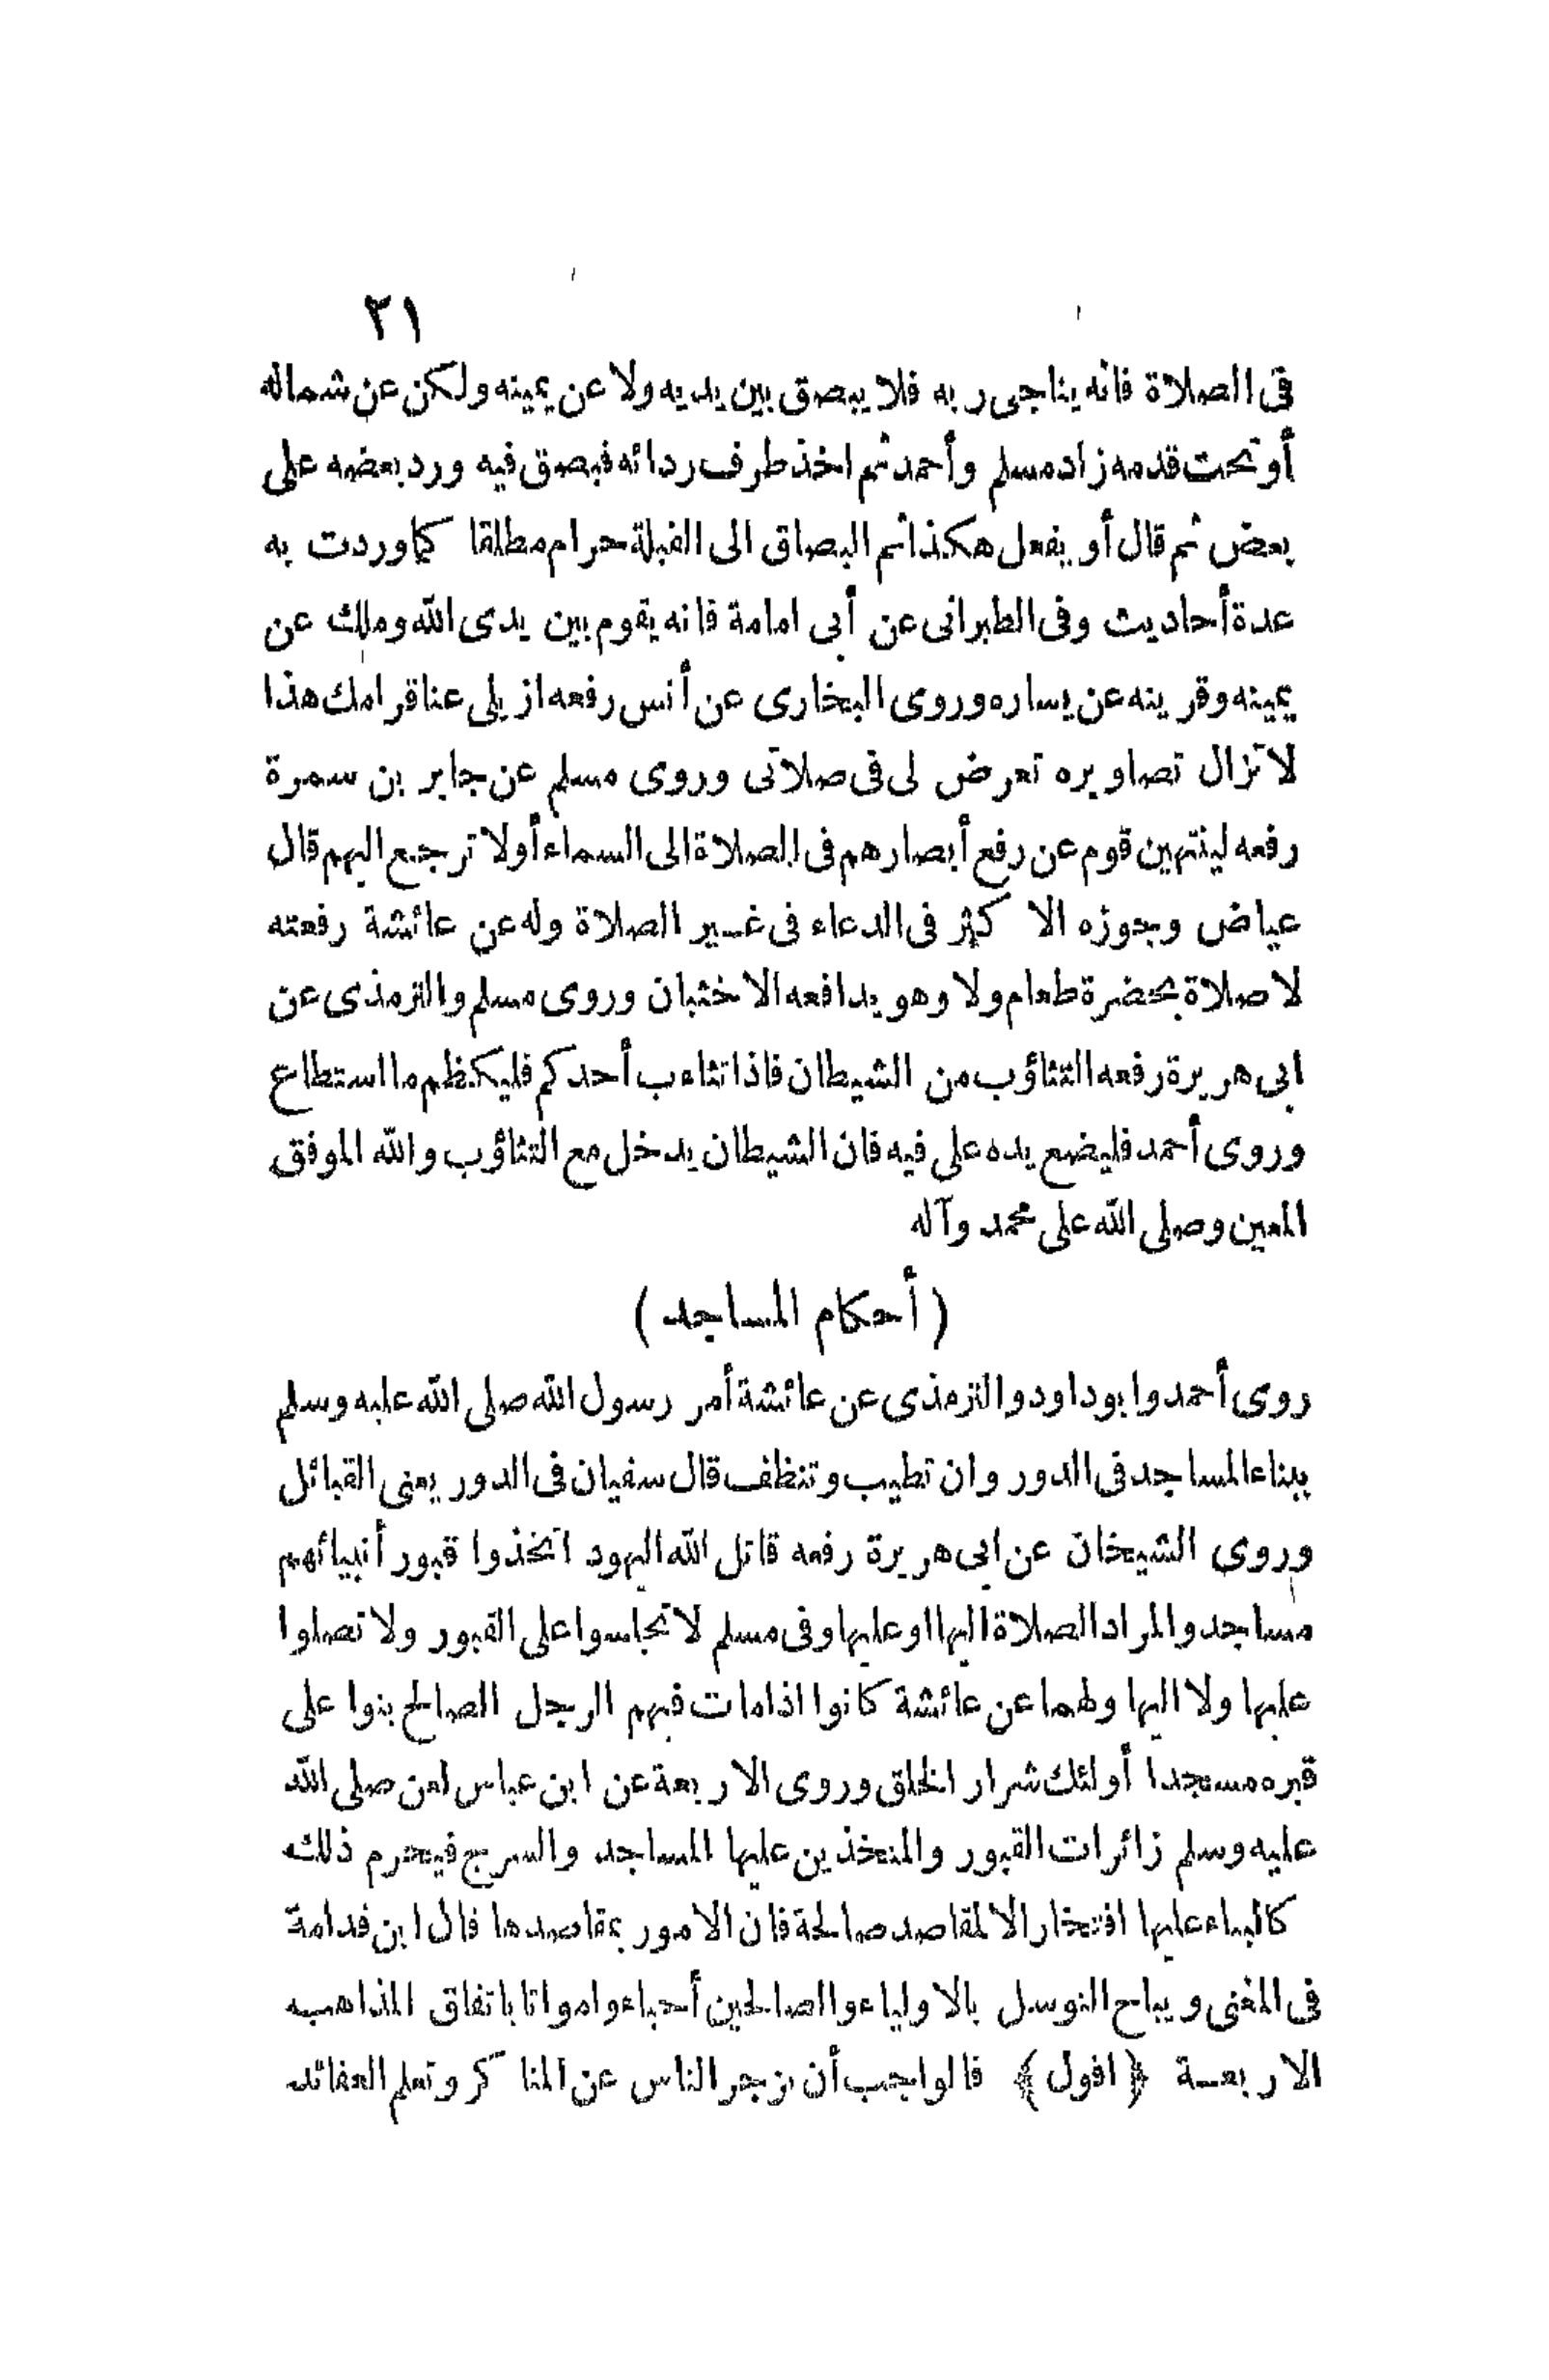 ٣١
فى الصلاة فانه يناجى ربه فلا يبصق بين يديه ولا عن يمينه ولكن عن شماله
أو تحت قدمه زاد مسلم وأحمد ثم اخذ طرف ردائه فبصق فيه ورد بعضه على
بعض ثم قال أو يفعل هكذا ثم البصاق الى القبلة حرام مطلقا كما وردت به
عدة أحاديث وفى الطبرانى عن أبى امامة فانه يقوم بين يدى الله وملك عن
يمينه وقرينه عن يساره وروى البخارى عن أنس رفعه ازيلى عنا قرامك هذا
لا تزال تصاويره تعرض لى فى صلاتى وروى مسلم عن جابر بن سمرة
رفعه لينتهين قوم عن رفع أبصارهم فى الصلاة الى السماء أولا ترجع اليهم قال
عياض وجوزه الاكثر فى الدعاء فى غير الصلاة وله عن عائشة رفعته
لا صلاة بحضرة طعام ولا وهو يدافعه الاخثبان وروى مسلم والترمذى عن
ابى هريرة رفعه التثاؤب من الشيطان فاذا تثاءب أحدكم فليكظم ما استطاع
وروى أحمد فليضع يده على فيه فان الشيطان يدخل مع التثاؤب والله الموفق
المعين وصلى الله على محمد وآله
( أحكام المساجد )
روى أحمد وابو داود والترمذى عن عائشة أمر رسول الله صلى الله عليه وسلم
ببناء المساجد فى الدور وان تطيب وتنظف قال سفيان فى الدور يعنى القبائل
وروى الشيخان عن ابى هريرة رفعه قاتل الله اليهود اتخذوا قبور أنبيائهم
مساجد والمراد الصلاة اليها او عليها وفى مسلم لا تجلسوا على القبور ولا تصلوا
عليها ولا اليها ولهما عن عائشة كانوا اذا مات فيهم الرجل الصالح بنوا على
قبره مسجدا أولئك شرار الخلق وروى الاربعة عن ابن عباس لعن صلى الله
عليه وسلم زائرات القبور والمتخذين عليها المساجد والسرج فيحرم ذلك
كالبناء عليها افتخارا لا لمقاصد صالحة فان الامور بمقاصدها قال ابن قدامة
فى المغنى ويباح التوسل بالاولياء والصالحين أحياء وامواتا باتفاق المذاهب
الاربعة ﴿ اقول ﴾ فالواجب أن يزجر الناس عن المناكر وتعلم العقائد